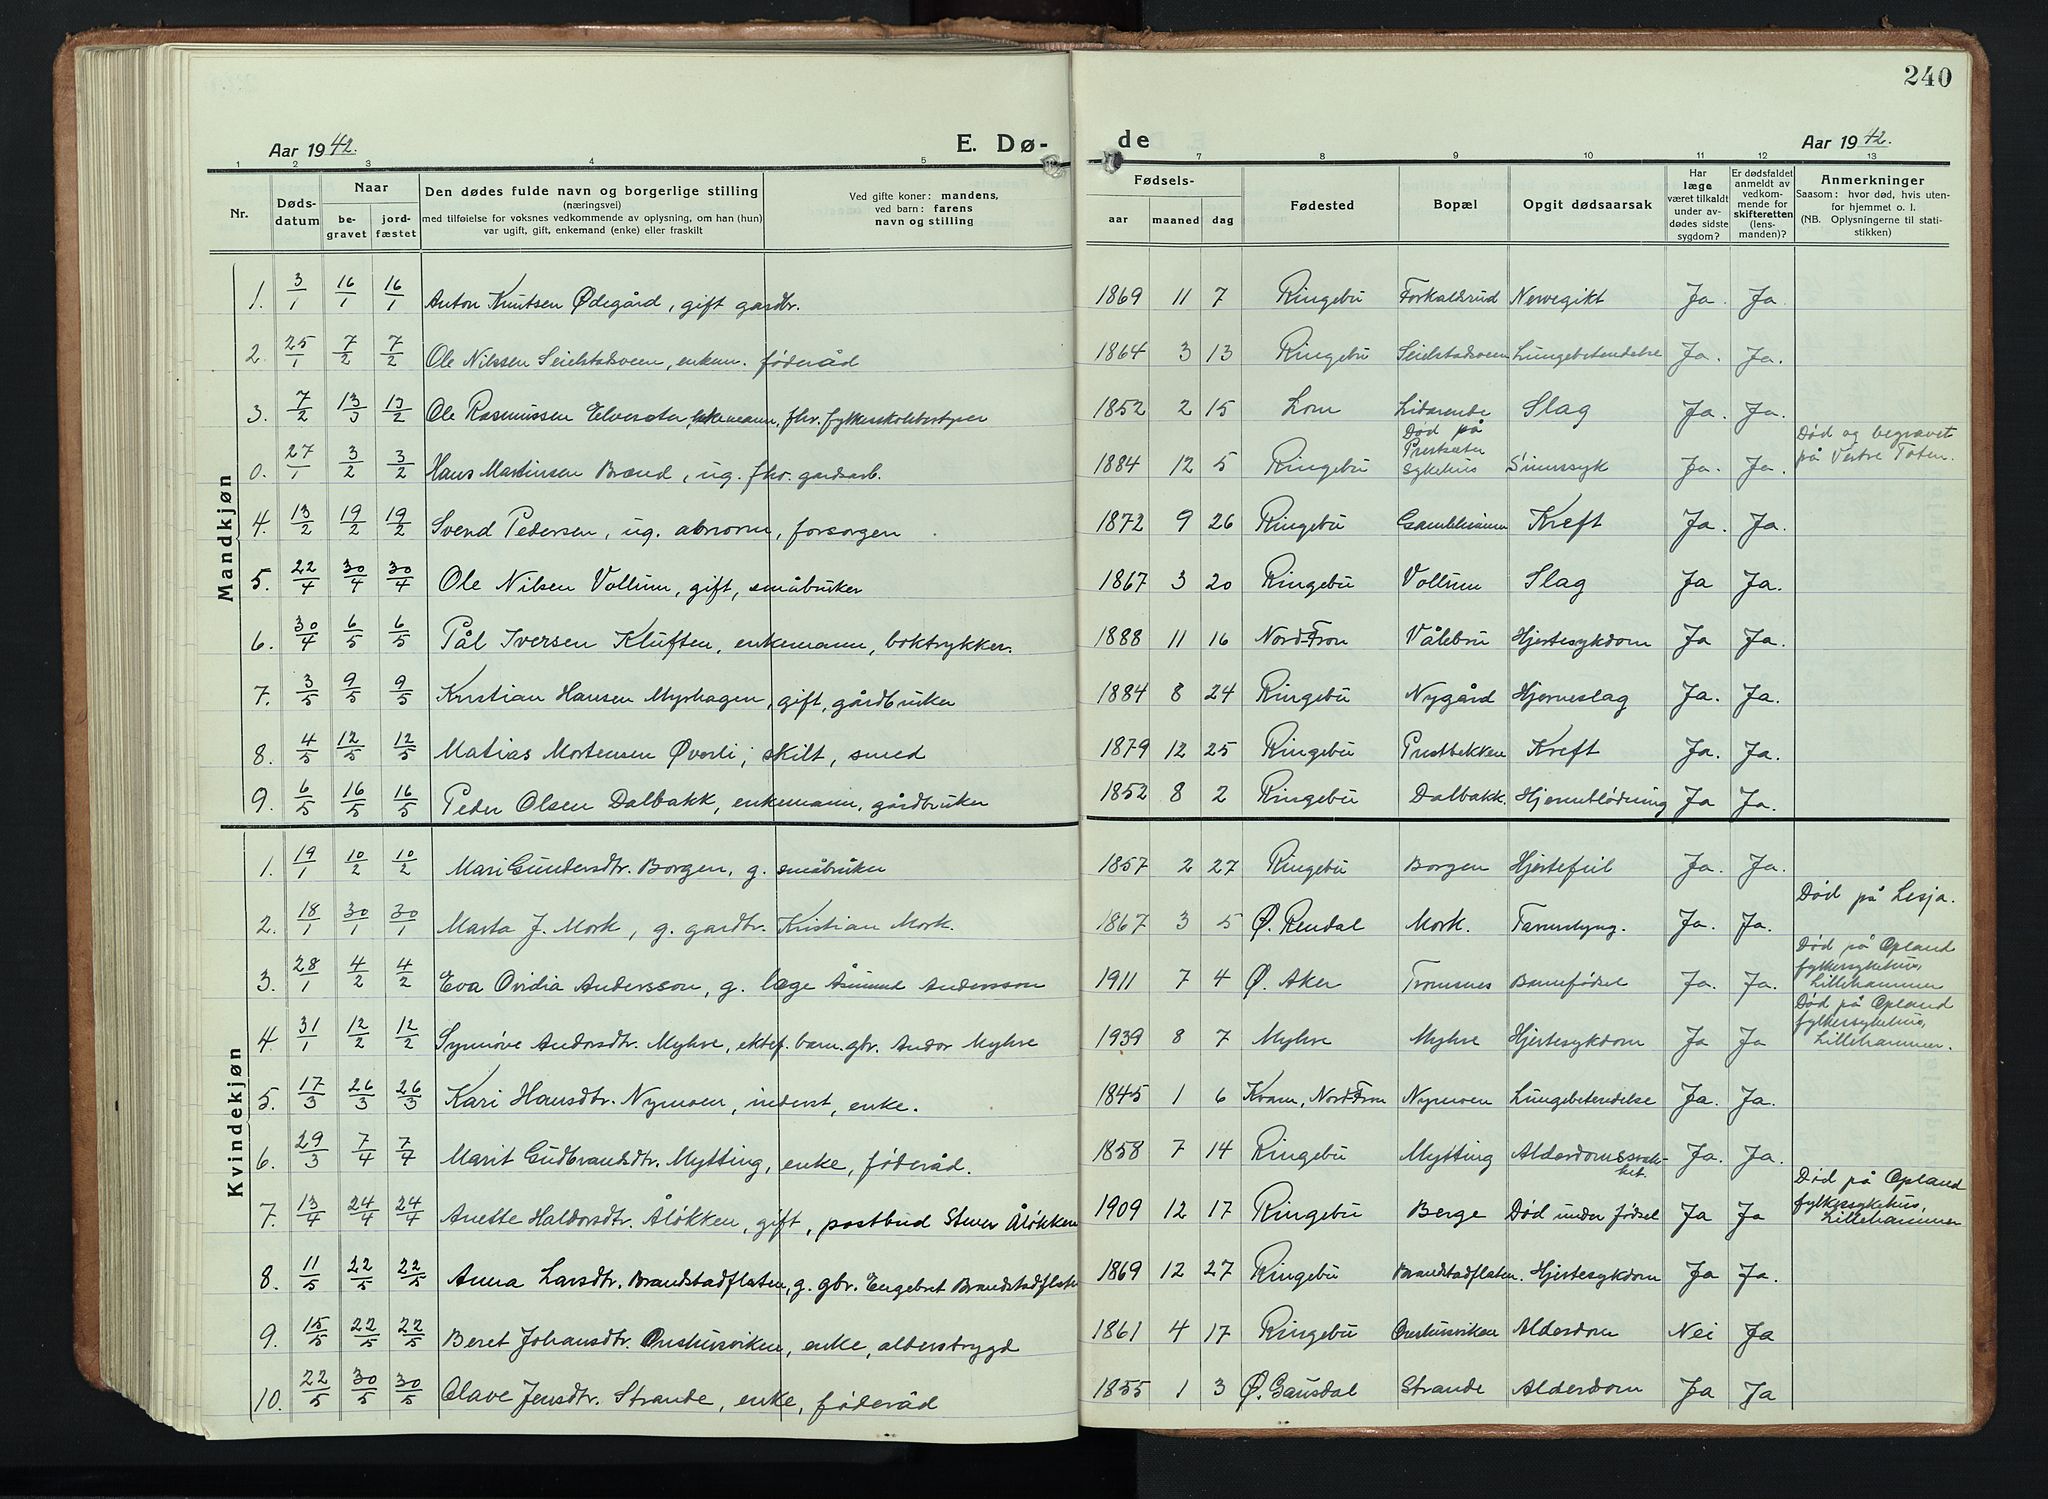 240
Aar 1942.
E. Dø-
de
Aar 1942.
1 2 3 4 5 7 8 9 10 11 12 13
Nr.
Døds-
datum
Naar
be-
gravet
jord-
fæstet
Den dødes fulde navn og borgerlige stilling
(næringsvei)
med tilføielse for voksnes vedkommende av oplysning, om han (hun)
var ugift, gift, enkemand (enke) eller fraskilt
Ved gifte koner: mandens,
ved barn: farens
navn og stilling
Fødsels-
aar maaned dag
Fødested
Bopæl
Opgit dødsaarsak
Har
læge
været tilkaldt
under av-
dødes sidste
sygdom?
Er dødsfaldet
anmeldt av
vedkom-
mende for
skifteretten
(lens-
manden)?
Anmerkninger
Saasom: hvor død, hvis uten-
for hjemmet o. l.
(NB. Oplysningerne til stati-
stikken)
Mandkjøn
1. 3/1 16/1 16/1 Anton Knutsen Ødegård, gift gardbr. 1869 11 7 Ringebu Forkaldsrud Nervegikt Ja. Ja.
2. 25/1 7/2 7/2 Ole Nilssen Seielstadsveen, enkem. føderåd 1864 3 13 Ringebu Seielstadsveen Lungebetendelse Ja. Ja.
3. 7/2 13/3 13/2 Ole Rasmussen Elvesæter, enkemann, fhv. fylkesskolebestyrer 1852 2 15 Lom Slag Ja. Ja.
0. 27/1 3/2 3/2 Hans Martinsen Brænd, ug. fhv. gardsarb. 1884 12 5 Ringebu Død på Prestsæter sykehus Sinnssyk Ja. Ja. Død og begravet på Vestre Toten.
4. 13/2 19/2 19/2 Svend Pedersen, ug. abnorm, forsorgen 1872 9 26 Ringebu Gamleheimen Kreft Ja. Ja.
5. 22/4 30/4 30/4 Ole Nilsen Vollum, gift, småbruker 1867 3 20 Ringebu Vollum Slag Ja Ja.
6. 30/4 6/5 6/5 Pål Iversen Kluften, enkemann, boktrykker. 1888 11 16 Nord Fron Vålebru Hjertesykdom Ja Ja.
7. 3/5 9/5 9/5 Kristian Hansen Myrhagen, gift, gårdbruker 1884 8 24 Ringebu Nygård Hjerneslag Ja. Ja.
8. 4/5 12/5 12/5 Matias Mortensen Øverli, skilt, smed 1879 12 25 Ringebu Prestbekken Kreft Ja. Ja.
9. 6/5 16/5 16/5 Peder Olsen Dalbakk, enkemann, gårdbruker 1852 8 2 Ringebu Dalbakk. Hjerneblødning Ja Ja.
Kvindekjøn
1. 19/1 10/2 10/2 Mari Gundersdtr. Borgen, g. småbruker 1857 2 27 Ringebu Borgen Hjertefeil Ja. Ja.
2. 18/1 30/1 30/1 Marta J. Mork, g. gardbr. Kristian Mork. 1867 3 5 Ø. Rendal Mork. Tarmslyng. Ja. Ja. Død på Lesja.
3. 28/1 4/2 4/2 Eva Ovidia Andersson, g. læge Åsmund Andersson 1911 7 4 Ø. Aker Tromsnes Barnefødsel Ja. Ja. Død på Opland fylkessykehus, Lillehammer
4. 31/1 12/2 12/2 Synnøve Andorsdtr. Myhre, ektef. barn. gbr. Andor Myhre 1939 8 7 Myhre Myhre Hjertesykdom Ja Ja Død på Opland fylkessykehus, Lillehammer.
5. 17/3 26/3 26/3 Kari Hansdtr. Nymoen, inderst, enke. 1845 1 6 Kvam, Nord Fron Nymoen Lungebetendelse Ja. Ja.
6. 29/3 7/4 7/4 Marit Gudbrandsdtr. Mytting, enke, føderåd. 1858 7 14 Ringebu Mytting Alderdomssvak-het. Ja. Ja.
7. 13/4 24/4 24/4 Anette Haldorsdtr. Åløkken, gift, postbud Steiner Åløkken 1909 12 17 Ringebu Berge Død under fødsel Ja Ja Død på Opland fylkessykehus, Lillehammer
8. 11/5 22/5 22/5 Anna Larsdtr. Brandstadflaten, g. gbr. Engebret Brandstadflaten 1869 12 27 Ringebu Brandstadflaten. Hjertesykdom Ja Ja.
9. 15/5 22/5 22/5 Beret Johansdtr. Onshusviken, enke, alderstrygd 1861 4 17 Ringebu Onshusviken Alderdom Nei Ja
10. 22/5 30/5 30/5 Olave Jensdtr. Strande, enke, føderåd 1855 1 3 Ø. Gausdal Strande Alderdom Ja Ja